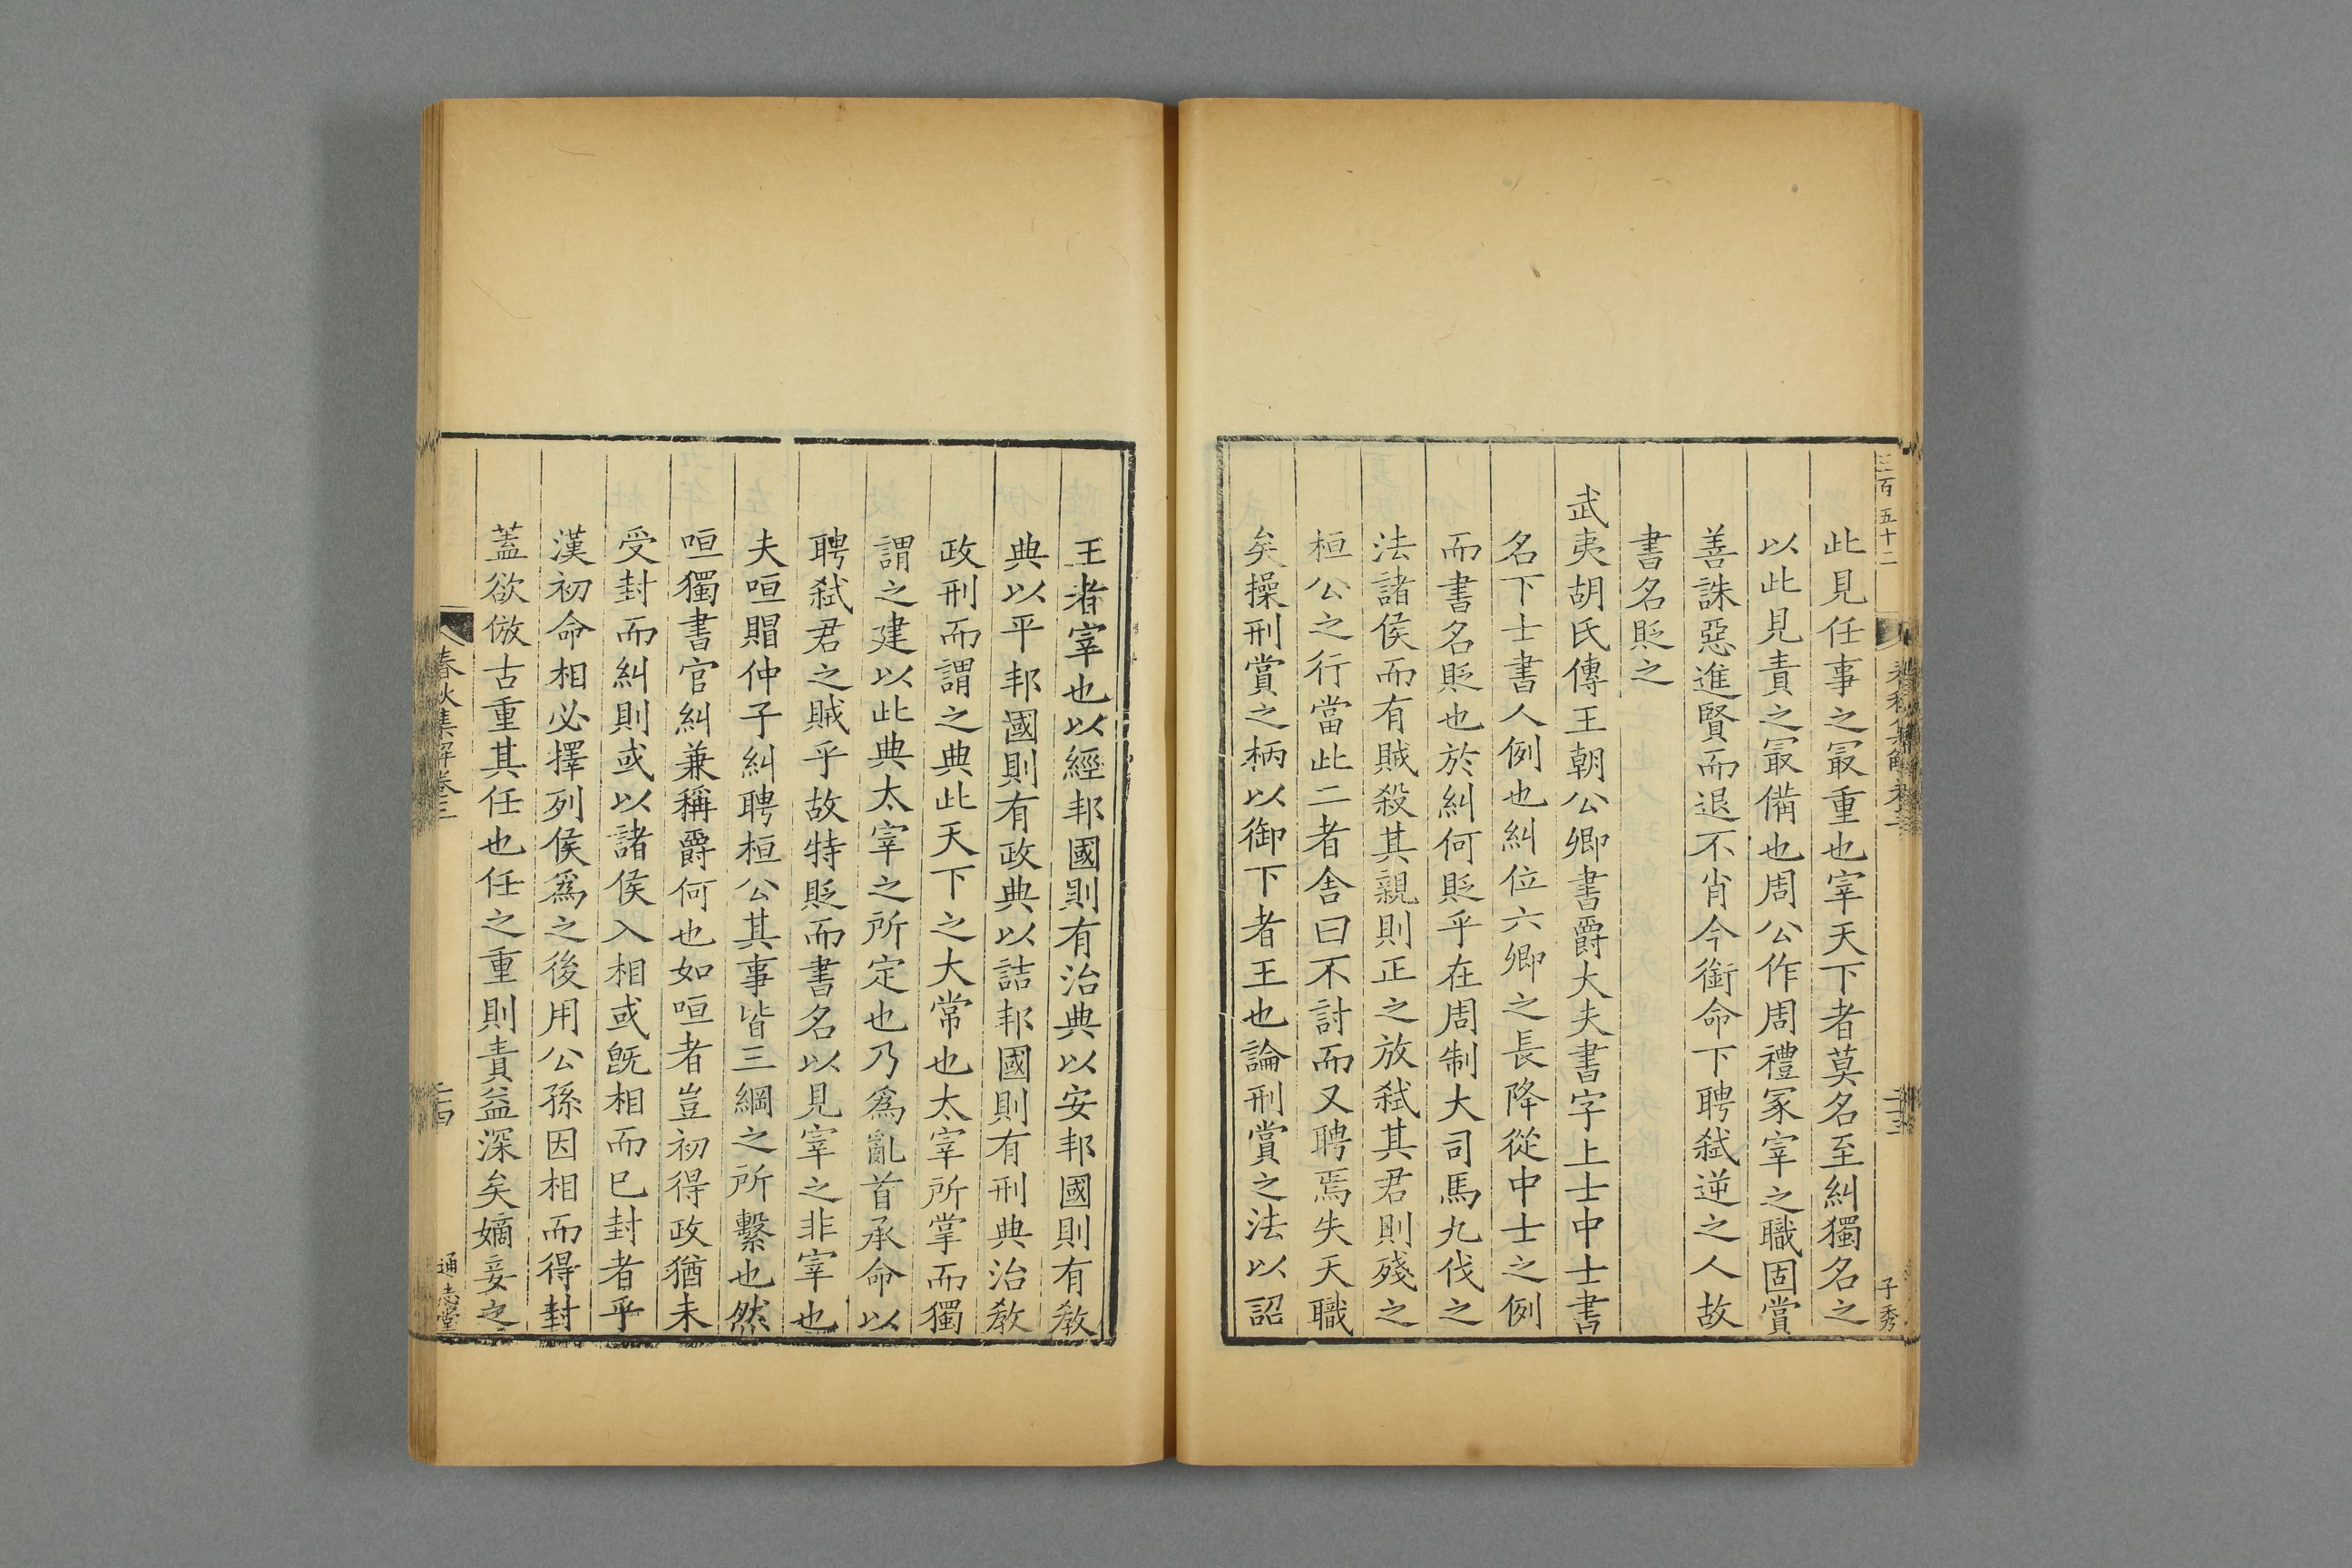 三百五十二
春秋集解卷三
二十三
子秀
此見任事之冣重也宰天下者莫名至糾獨名之
以此見責之冣備也周公作周禮冢宰之職固賞
善誅惡進賢而退不肖今銜命下聘弑逆之人故
書名貶之
武夷胡氏傳王朝公卿書爵大夫書字上士中士書
名下士書人例也糾位六卿之長降從中士之例
而書名貶也於糾何貶乎在周制大司馬九伐之
法諸侯而有賊殺其親則正之放弑其君則殘之
桓公之行當此二者舍曰不討而又聘焉失天職
矣操刑賞之柄以御下者王也論刑賞之法以詔
王者宰也以經邦國則有治典以安邦國則有教
典以平邦國則有政典以詰邦國則有刑典治教
政刑而謂之典此天下之大常也太宰所掌而獨
謂之建以此典太宰之所定也乃爲亂首承命以
聘弑君之賊乎故特貶而書名以見宰之非宰也
夫咺賵仲子糾聘桓公其事皆三綱之所繫也然
咺獨書官糾兼稱爵何也如咺者豈初得政猶未
受封而糾則或以諸侯入相或旣相而已封者乎
漢初命相必擇列侯爲之後用公孫因相而得封
蓋欲倣古重其任也任之重則責益深矣嫡妾之
春秋集解卷三
二十四
通志堂